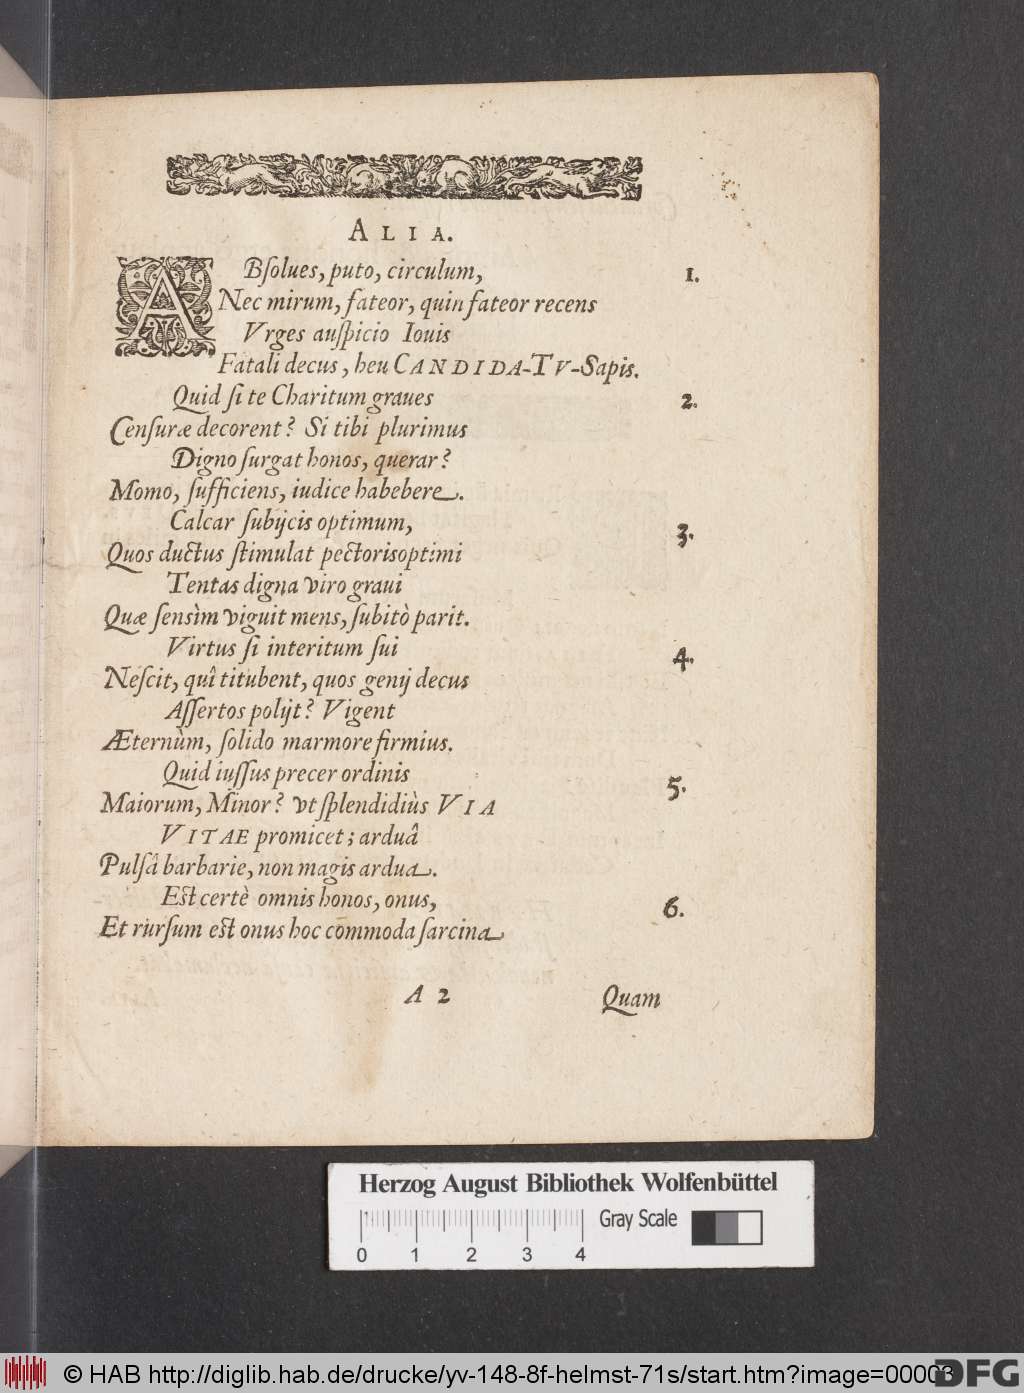 ALIA.
ABſolues, puto, circulum, 1.
Nec mirum, fateor, quin fateor recens
Vrges auſpicio Iouis
Fatali decus, heu CANDIDA-TV-Sapis.
Quid ſi te Charitum graues 2.
Cenſuræ decorent? Si tibi plurimus
Digno ſurgat honos, querar?
Momo, ſufficiens, iudice habebere.
Calcar ſubijcis optimum, 3.
Quos ductus ſtimulat pectorisoptimi
Tentas digna viro graui
Quæ ſensìm viguit mens, ſubitò parit.
Virtus ſi interitum ſui 4.
Neſcit, quî titubent, quos genij decus
Aſſertos polijt? Vigent
Æternùm, ſolido marmore firmius.
Quid iuſſus precer ordinis 5.
Maiorum, Minor? vt ſplendidiùs VIA
VITAE promicet; arduâ
Pulſâ barbarie, non magis ardua.
Est certè omnis honos, onus, 6.
Et rurſum est onus hoc commoda ſarcina
A 2 Quam
Herzog August Bibliothek Wolfenbüttel
Gray Scale
0 1 2 3 4
© HAB http://diglib.hab.de/drucke/yv-148-8f-helmst-71s/start.htm?image=00003
DFG